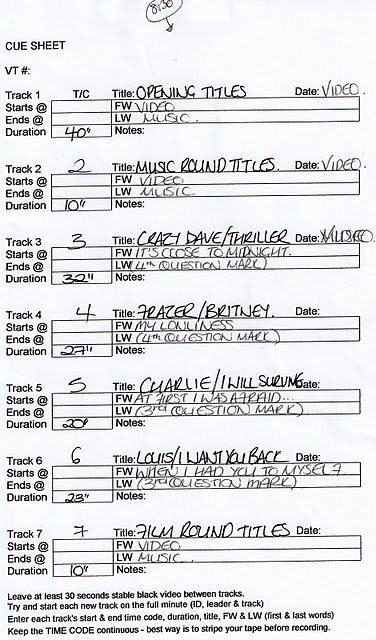 8:30
CUE SHEET
VT #:
Track 1 T/C Title: OPENING TITLES Date: VIDEO.
Starts @ FW VIDEO
Ends @ LW MUSIC.
Duration 40" Notes:
Track 2 2 Title: MUSIC ROUND TITLES. Date: VIDEO.
Starts @ FW VIDEO
Ends @ LW MUSIC.
Duration 10" Notes:
Track 3 3 Title: CRAZY DAVE/THRILLER Date:
Starts @ FW IT'S CLOSE TO MIDNIGHT.
Ends @ LW (4th QUESTION MARK)
Duration 32" Notes:
Track 4 4 Title: FRAZER/BRITNEY. Date:
Starts @ FW MY LONLINESS
Ends @ LW (4th QUESTION MARK)
Duration 27" Notes:
Track 5 5 Title: CHARLIE/I WILL SURVIVE Date:
Starts @ FW AT FIRST I WAS AFRAID...
Ends @ LW (3rd QUESTION MARK)
Duration 20" Notes:
Track 6 6 Title: LOUIS/I WANT YOU BACK Date:
Starts @ FW WHEN I HAD YOU TO MYSELF
Ends @ LW (3rd QUESTION MARK)
Duration 23" Notes:
Track 7 7 Title: FILM ROUND TITLES Date:
Starts @ FW VIDEO
Ends @ LW MUSIC.
Duration 10" Notes:
Leave at least 30 seconds stable black video between tracks.
Try and start each new track on the full minute (ID, leader & track)
Enter each track's start & end time code, duration, title, FW & LW (first & last words)
Keep the TIME CODE continuous - best way is to stripe your tape before recording.